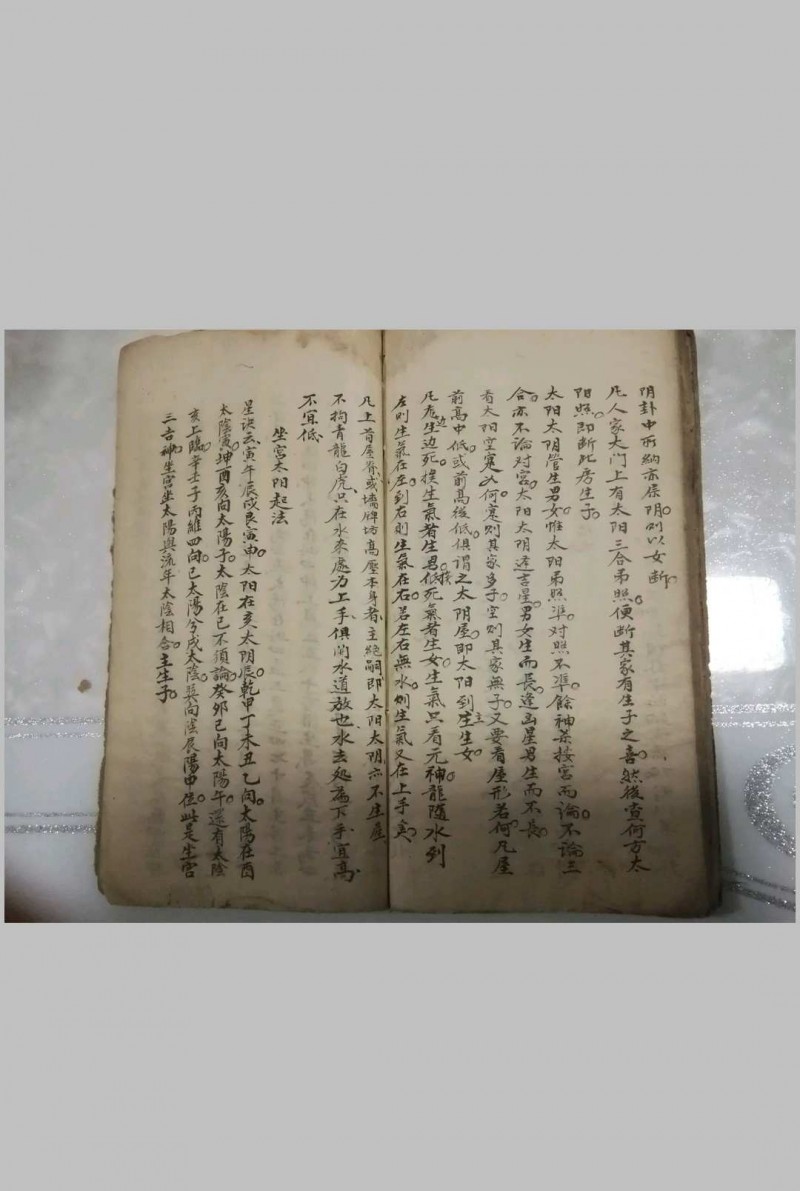 阴卦中所納亦屬阴。则以女断。
凡人家大门上有太阳三合吊照。便断其家有生子之喜。然後查何方太
阳照。即断此房生子。
太阳太阴管生男女。惟太阳吊照準。对照不準。餘神杀接宫而論。不論三
合。亦不論对宫。太阳太阴逢吉星。男女生而長。逢凶星男生而不長。
看太阳空寔如何。寔则其家多子。空则其家無子。又要看屋形若何。凡屋
前高中低。或前高後低。俱謂之太阴屋。即太阳到主生女。
凡龙生边死边。撲生氣者生男。撲死氣者生女。生氣只看元神。龍随水到
左则生氣在左。到右则生氣在右。若左右無水。则生氣又在上手矣。
凡上首屋脊。或墙牌坊高壓本身者。主絕嗣。即太阳太阴亦不生產
不拘青龍白虎。只在水來處为上手。俱関水道放也。水去処為下手。宜高
不宜低。
坐宫太阳起法
星诀云。寅午辰戌艮寅申。太阳在亥太阴辰。乾甲丁未丑乙向。太陽在酉
太陰寅。坤酉亥向太陽子。太陰在巳不須論。癸卯巳向太陽午。還有太陰
亥上臨。辛壬子丙維四向。巳太陽兮戌太陰。巽向陰辰陽申位。此是坐宫
三吉神。坐宫坐太陽與流年太陰相合。主生子。